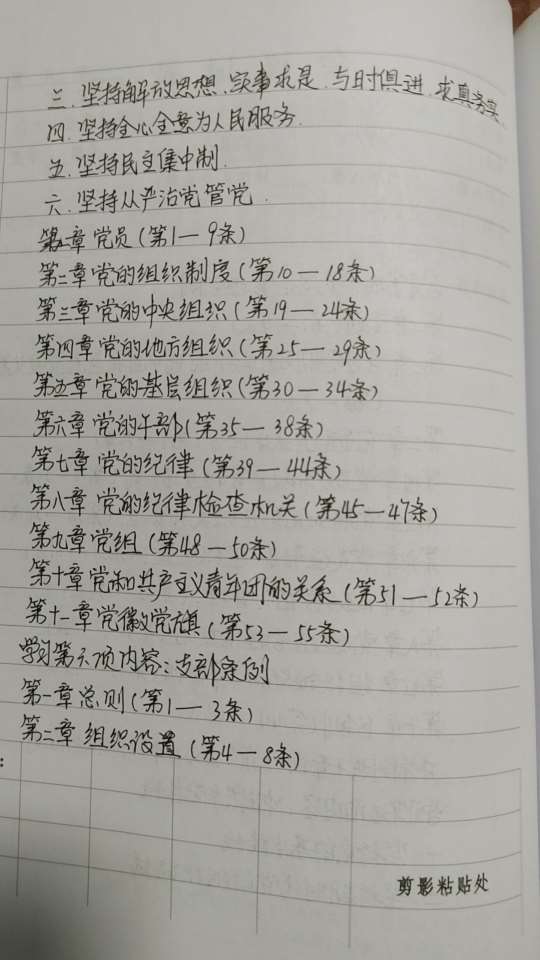 三.坚持解放思想、实事求是、与时俱进、求真务实、
四.坚持全心全意为人民服务.
五.坚持民主集中制.
六.坚持从严治党管党.
第一章党员(第1—9条)
第二章党的组织制度(第10—18条)
第三章党的中央组织(第19—24条)
第四章党的地方组织(第25—29条)
第五章党的基层组织(第30—34条)
第六章党的干部(第35—38条)
第七章党的纪律(第39—44条)
第八章党的纪律检查机关(第45—47条)
第九章党组(第48—50条)
第十章党和共产主义青年团的关系(第51—52条)
第十一章党徽党旗(第53—55条)
学习第六项内容:支部条例
第一章总则(第1—3条)
第二章组织设置(第4—8条)
:
剪影粘贴处